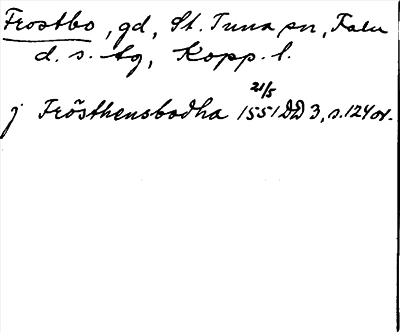 Frostbo, gd, St. Tuna sn, Falu
d. s. tg, Kopp. l.
21/5
j Frösthensbodha 1551 DD 3, s. 124 or.